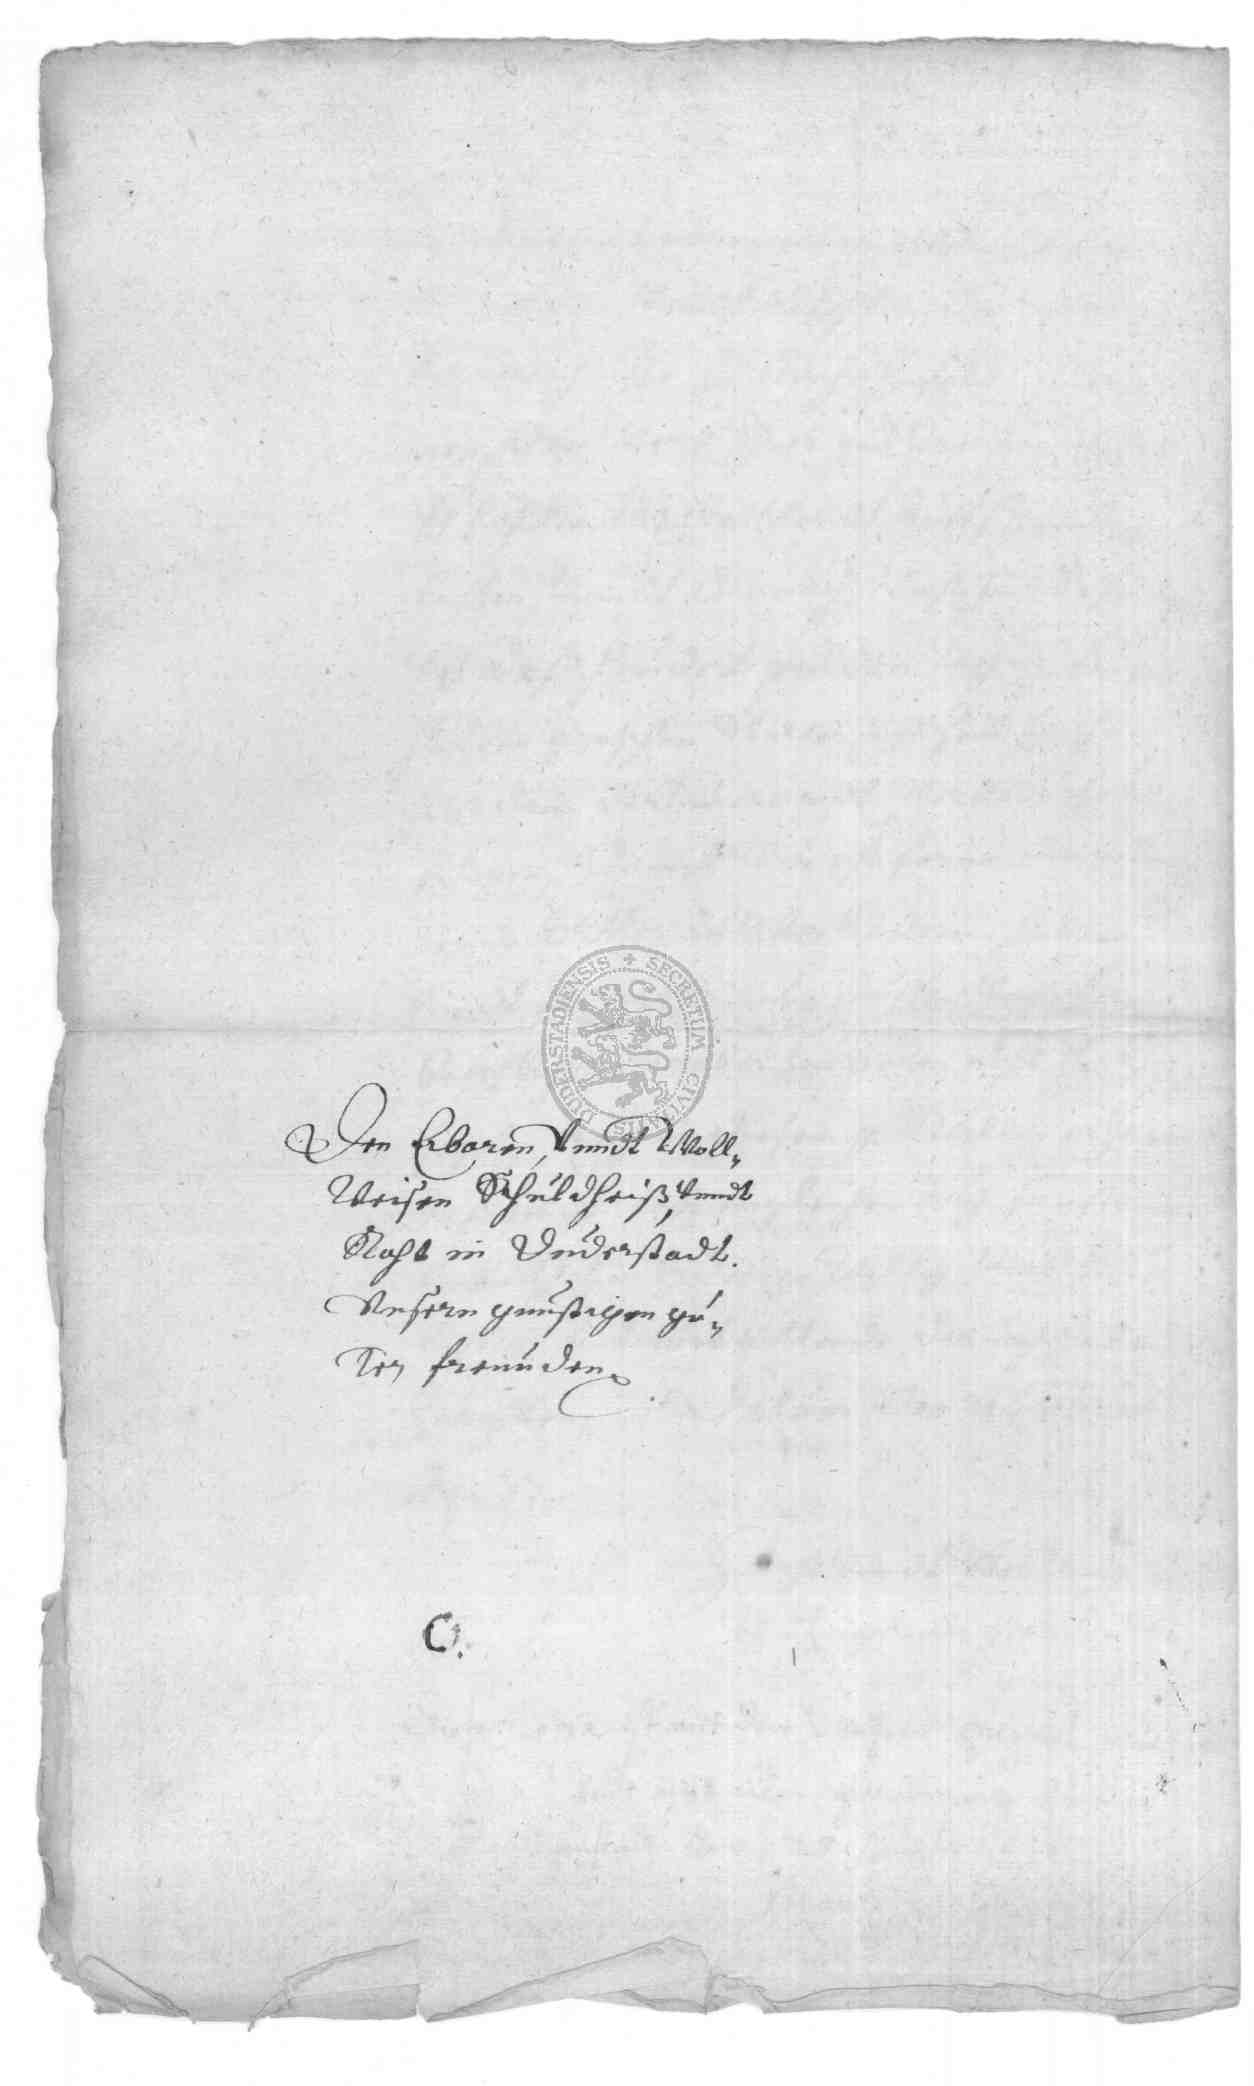 SECRETUM CIVITATIS DUDERSTADIENSIS
Den Erbaren, Vnndt Woll„
Weisen Schuldheiß, Vnndt
Raht in Duderstadt.
Vnsern gunstigen gu„
ten freunden
C.